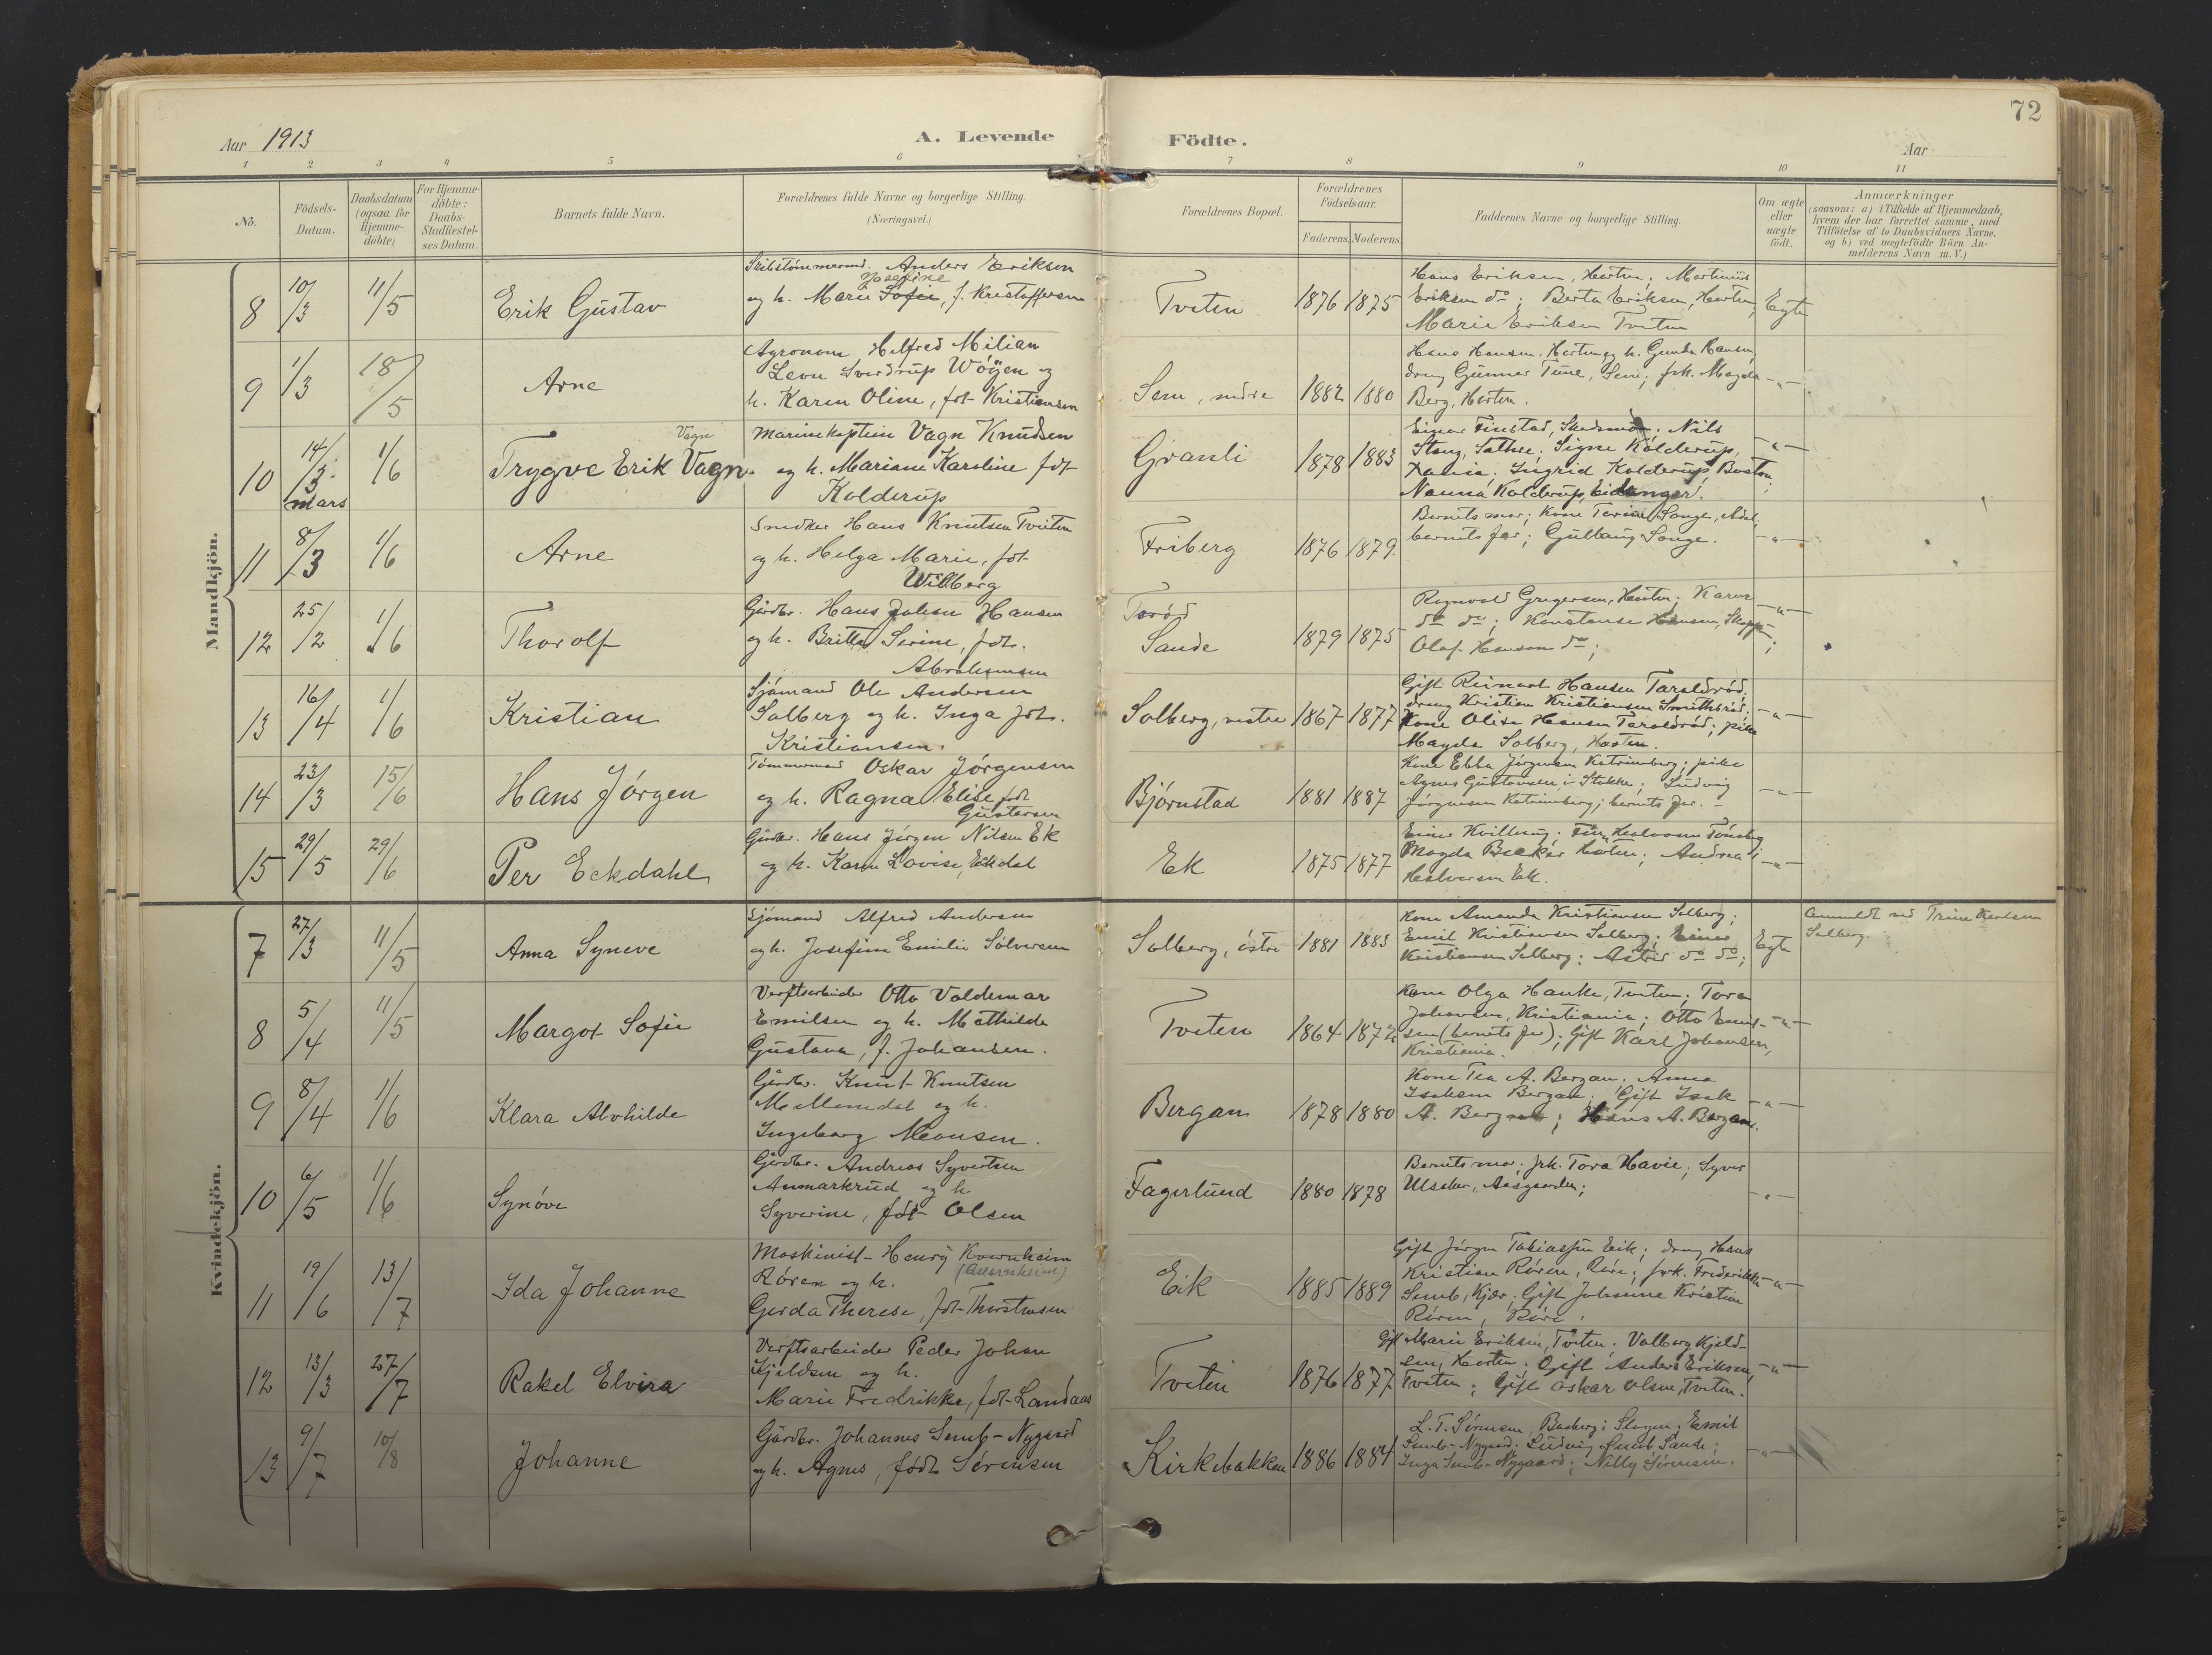 72
Aar 1913
A. Levende Födte.
Aar
1 2 3 4 5 6 7 8 9 10 11
No.
Födsels-Datum.
Daabsdatum (ogsaa for Hjemme-döbte)
For Hjemme-döbte: Daabs-Stadfæstel-ses Datum.
Barnets fulde Navn.
Forældrenes fulde Navne og borgerlige Stilling. (Næringsvei.)
Forældrenes Bopæl.
Forældrenes Födselsaar.
Faderens. Moderens.
Faddernes Navne og borgerlige Stilling.
Om ægte eller uægte födt.
Anmærkninger
(saasom: a) i Tilfælde af Hjemmedaab,
hvem der har forrettet samme, med
Tilföielse af to Daabsvidners Navne.
og b) ved uægtefödte Börn An-
melderens Navn m. V.)
Mandkjön.
8 10/3 11/5 Erik Gustav
Skibstömmermd. Anders Eriksen
Josefine
og h. Marie Sofie, f. Kristoffersen
Tveten 1876 1875
Hans Eriksen, Horten; Martinius
Eriksen do; Berta Eriksen, Horten,
Marie Eriksen Tveten
Egte
9 1/3 18/5 Arne
Agronom Helfred Milian
Leon Sverdrup Wöyen og
h. Karen Oline, fdt Kristiansen
Sem, nedre 1882 1880
Hans Hansen, Horten og h. Gunda Hansen,
dreng Gunnar Tune, Sem; frk. Magda
Berg, Horten.
-"-
10 14/3 mars 1/6 Trygve Erik Vagn
Vagn
Marinekaptein Vagn Knudsen
og h. Mariane Karoline fdt
Kolderup
Granli 1878 1883
Einar Finstad, Skedsmo; Nils
Stang, Sathre; Signe Kolderup,
Xania; Ingrid Kolderup, Boston;
Nanna Kolderup, Eidanger.
-"-
11 8/3 1/6 Arne
Snedker Hans Knutsen Tveten
og h. Helga Marie, fdt
Willberg
Friberg 1876 1879
Barnets mor; kone Terine Sange,
barnets far; Gullaug Sange.
-"-
12 25/2 1/6 Thorolf
Gårdbr. Hans Julius Hansen
og h. Britta Serine, fdt.
Abrahamsen
Toröd
Sande 1879 1875
Ragnvald Gregersen, Horten; Karen
do do; Konstanse Hansen,
Olaf Hansen do;
-"-
13 16/4 1/6 Kristian
Sjömand Ole Andersen
Solberg og h. Inga fdt.
Kristiansen.
Solberg, vestre 1867 1877
Gift Reinert Hansen Taraldröd;
dreng Kristian Kristiansen Smithsröd;
Kone Olise Hansen Taraldröd; pike
Magda Solberg, Horten.
-"-
14 23/3 15/6 Hans Jörgen
Tömmermand Oskar Jörgensen
og h. Ragna Elise fdt
Gustavsen
Björnstad 1881 1887
Kone Ebba Jörgensen Katrineberg; pike
Agnes Gustavsen i Stokke; Ludvig
Jörgensen Katrineberg; barnets far.
-"-
15 29/5 29/6 Per Eckdahl
Gårdbr. Hans Jörgen Nilsen Ek
og h. Karen Lovise, Ekdal
Ek 1875 1877
Einar Kvilhaug; Finn Halvorsen Tönsberg
Magda Becker Horten; Andrea
Halvorsen Ek.
-"-
Kvindekjön.
7 27/3 11/5 Anna Syneve
Sjömand Alfred Andersen
og h. Josefine Emilie Sölversen
Solberg, östre 1881 1883
Kone Amanda Kristiansen Solberg;
Emil Kristiansen Solberg; Einar
Kristiansen Solberg; Astrid do do;
Egte
Anmeldt ved Trine Karlsen
Solberg.
8 5/4 11/5 Margot Sofie
Verftsarbeider Otto Valdemar
Emilsen og h. Mathilde
Gustava, f. Johansen.
Tveten 1864 1872
Kone Olga Hanke, Tveten; Tora
Johansen, Kristiania; Otto Emil-
sen (barnets far); gift Karl Johansen,
Kristiania.
-"-
9 8/4 1/6 Klara Alvhilde
Gårdbr. Knut Knutsen
Mellemdal og h.
Ingeborg Monsen.
Bergan 1878 1880
Kone Tea A. Bergan; Anna
Isaksen Bergan; Gift Isak
A. Bergan; Hans A. Bergan.
-"-
10 6/5 1/6 Synöve
Gårdbr. Andreas Syvertsen
Aumarkrud og h.
Syverine, fdt Olsen
Fagerlund 1880 1878
Barnets mor; frk. Tora Havie; Syver
Ulsaker, Aasgaarden;
-"-
11 19/6 13/7 Ida Johanne
Maskinist Henry Kvernheim
(Quernheim)
Rören og h.
Gerda Therese, fdt Thorstensen
Eik 1885 1889
Gift Jörgen Tobiassen Eik; dreng Hans
Kristian Rören, Röre; frk. Fredrikke
Semb, Kjær; Gift Johanne Kristine
Rören, Röre.
-"-
12 13/3 27/7 Rakel Elvira
Verftsarbeider Peder Johan
Kjeldsen og h.
Marie Fredrikke, fdt Landaas
Tveten 1876 1877
Gift Marie Eriksen, Tveten; Valborg Kjeld-
sen, Horten; Gift Anders Eriksen,
Tveten; Gift Oskar Olsen, Tveten.
-"-
13 9/7 10/8 Johanne
Gårdbr. Johannes Semb-Nygaard
og h. Agnes, födt Sörensen
Kirkebakken 1886 1884
L. T. Sörensen, Basberg i Slagen; Emil
Semb-Nygaard; Ludvig Semb Sande;
Inga Semb-Nygaard; Nelly Sörensen.
-"-